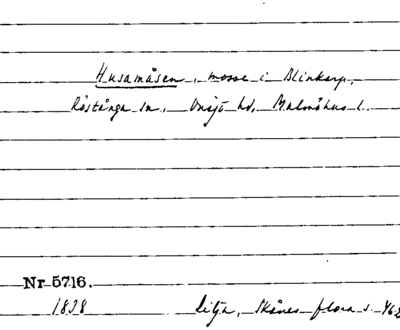 Husamåsen, mosse i Blinkarp,
Röstånga sn., Onsjö hd, Malmöhus l.
Nr 5716.
1838 Lilja, Skånes flora s. 462